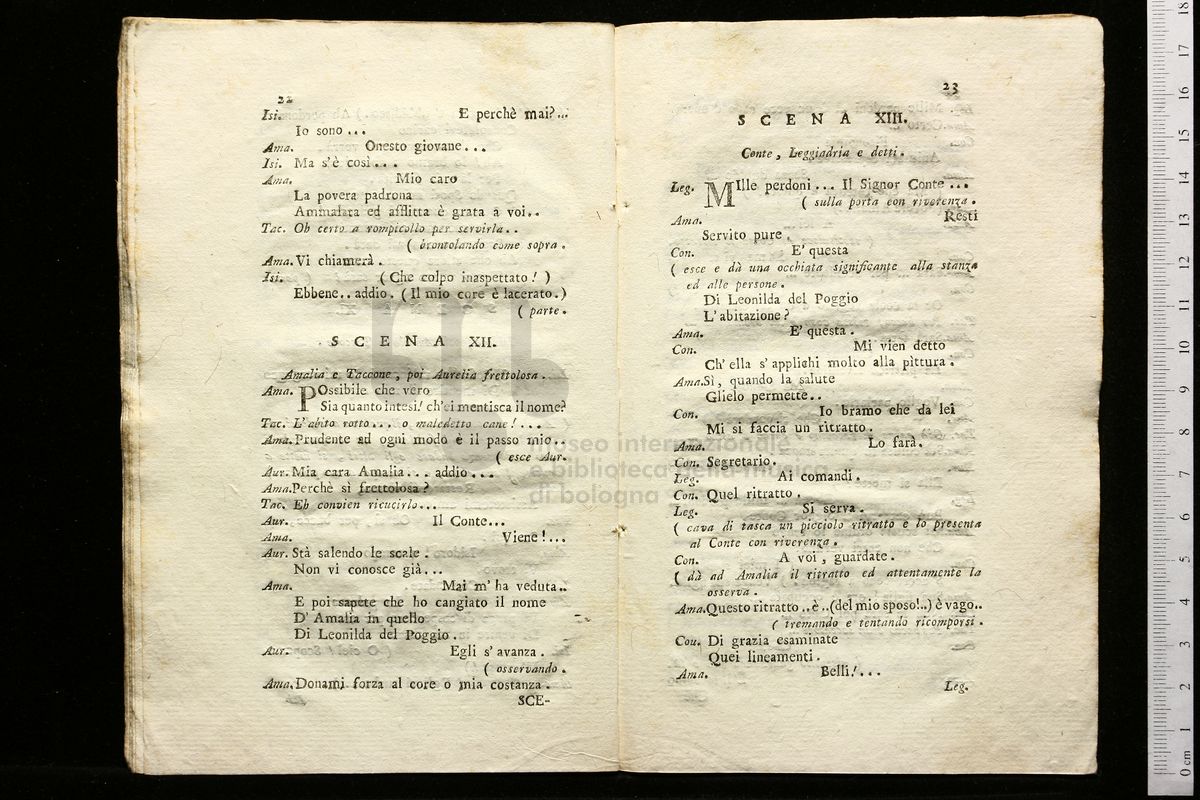 22
Isi. E perchè mai?...
Io sono ...
Ama. Onesto giovane...
Isi. Ma s'è così...
Ama. Mio caro
La povera padrona
Ammalata ed afflitta è grata a voi..
Tac. Oh certo a rompicollo per servirla..
( brontolando come sopra.
Ama. Vi chiamerà.
Isi. ( Che colpo inaspettato! )
Ebbene.. addio. ( Il mio core è lacerato.)
( parte.
SCENA XII.
Amalia e Taccone, poi Aurelia frettolosa.
Ama. POssibile che vero
Sia quanto intesi! ch'ei mentisca il nome?
Tac. L'abito rotto... o maledetto cane!...
Ama. Prudente ad ogni modo è il passo mio..
( esce Aur.
Aur. Mia cara Amalia... addio...
Ama. Perchè sì frettolosa?
Tac. Eh convien ricucirlo...
Aur. Il Conte...
Ama. Viene!...
Aur. Stà salendo le scale.
Non vi conosce già...
Ama. Mai m'ha veduta..
E poi sapete che ho cangiato il nome
D'Amalia in quello
Di Leonilda del Poggio.
Aur. Egli s'avanza.
( osservando.
Ama. Donami forza al core o mia costanza.
SCE-
23
SCENA XIII.
Conte, Leggiadria e detti.
Leg. MIlle perdoni... Il Signor Conte...
( sulla porta con riverenza.
Ama. Resti
Servito pure.
Con. E' questa
( esce e dà una occhiata significante alla stanza
ed alle persone.
Di Leonilda del Poggio
L'abitazione?
Ama. E' questa.
Con. Mi vien detto
Ch'ella s'applichi molto alla pittura.
Ama. Sì, quando la salute
Glielo permette..
Con. Io bramo che da lei
Mi si faccia un ritratto.
Ama. Lo farà.
Con. Segretario.
Leg. Ai comandi.
Con. Quel ritratto.
Leg. Si serva.
( cava di tasca un picciolo ritratto e lo presenta
al Conte con riverenza.
Con. A voi, guardate.
( dà ad Amalia il ritratto ed attentamente la
osserva.
Ama. Questo ritratto..è..(del mio sposo!..) è vago..
( tremando e tentando ricomporsi.
Cou. Di grazia esaminate
Quei lineamenti.
Ama. Belli!...
Leg.
museo internazionale
e biblioteca della musica
di bologna
0 cm 1 2 3 4 5 6 7 8 9 10 11 12 13 14 15 16 17 18